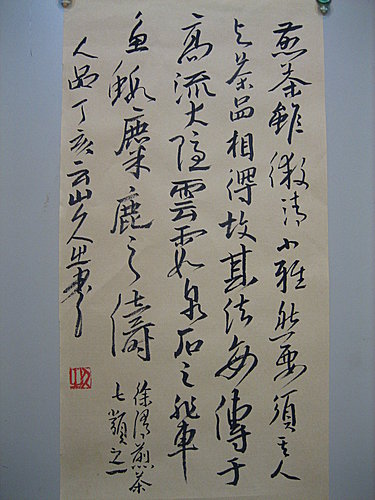 煎茶雖微清小雅然要須其人
与茶品相得故其法每傳于
高流大隐雲霞泉石之輩
魚蝦麋鹿之儔
徐渭煎茶
七類之一
人品丁亥云山人书